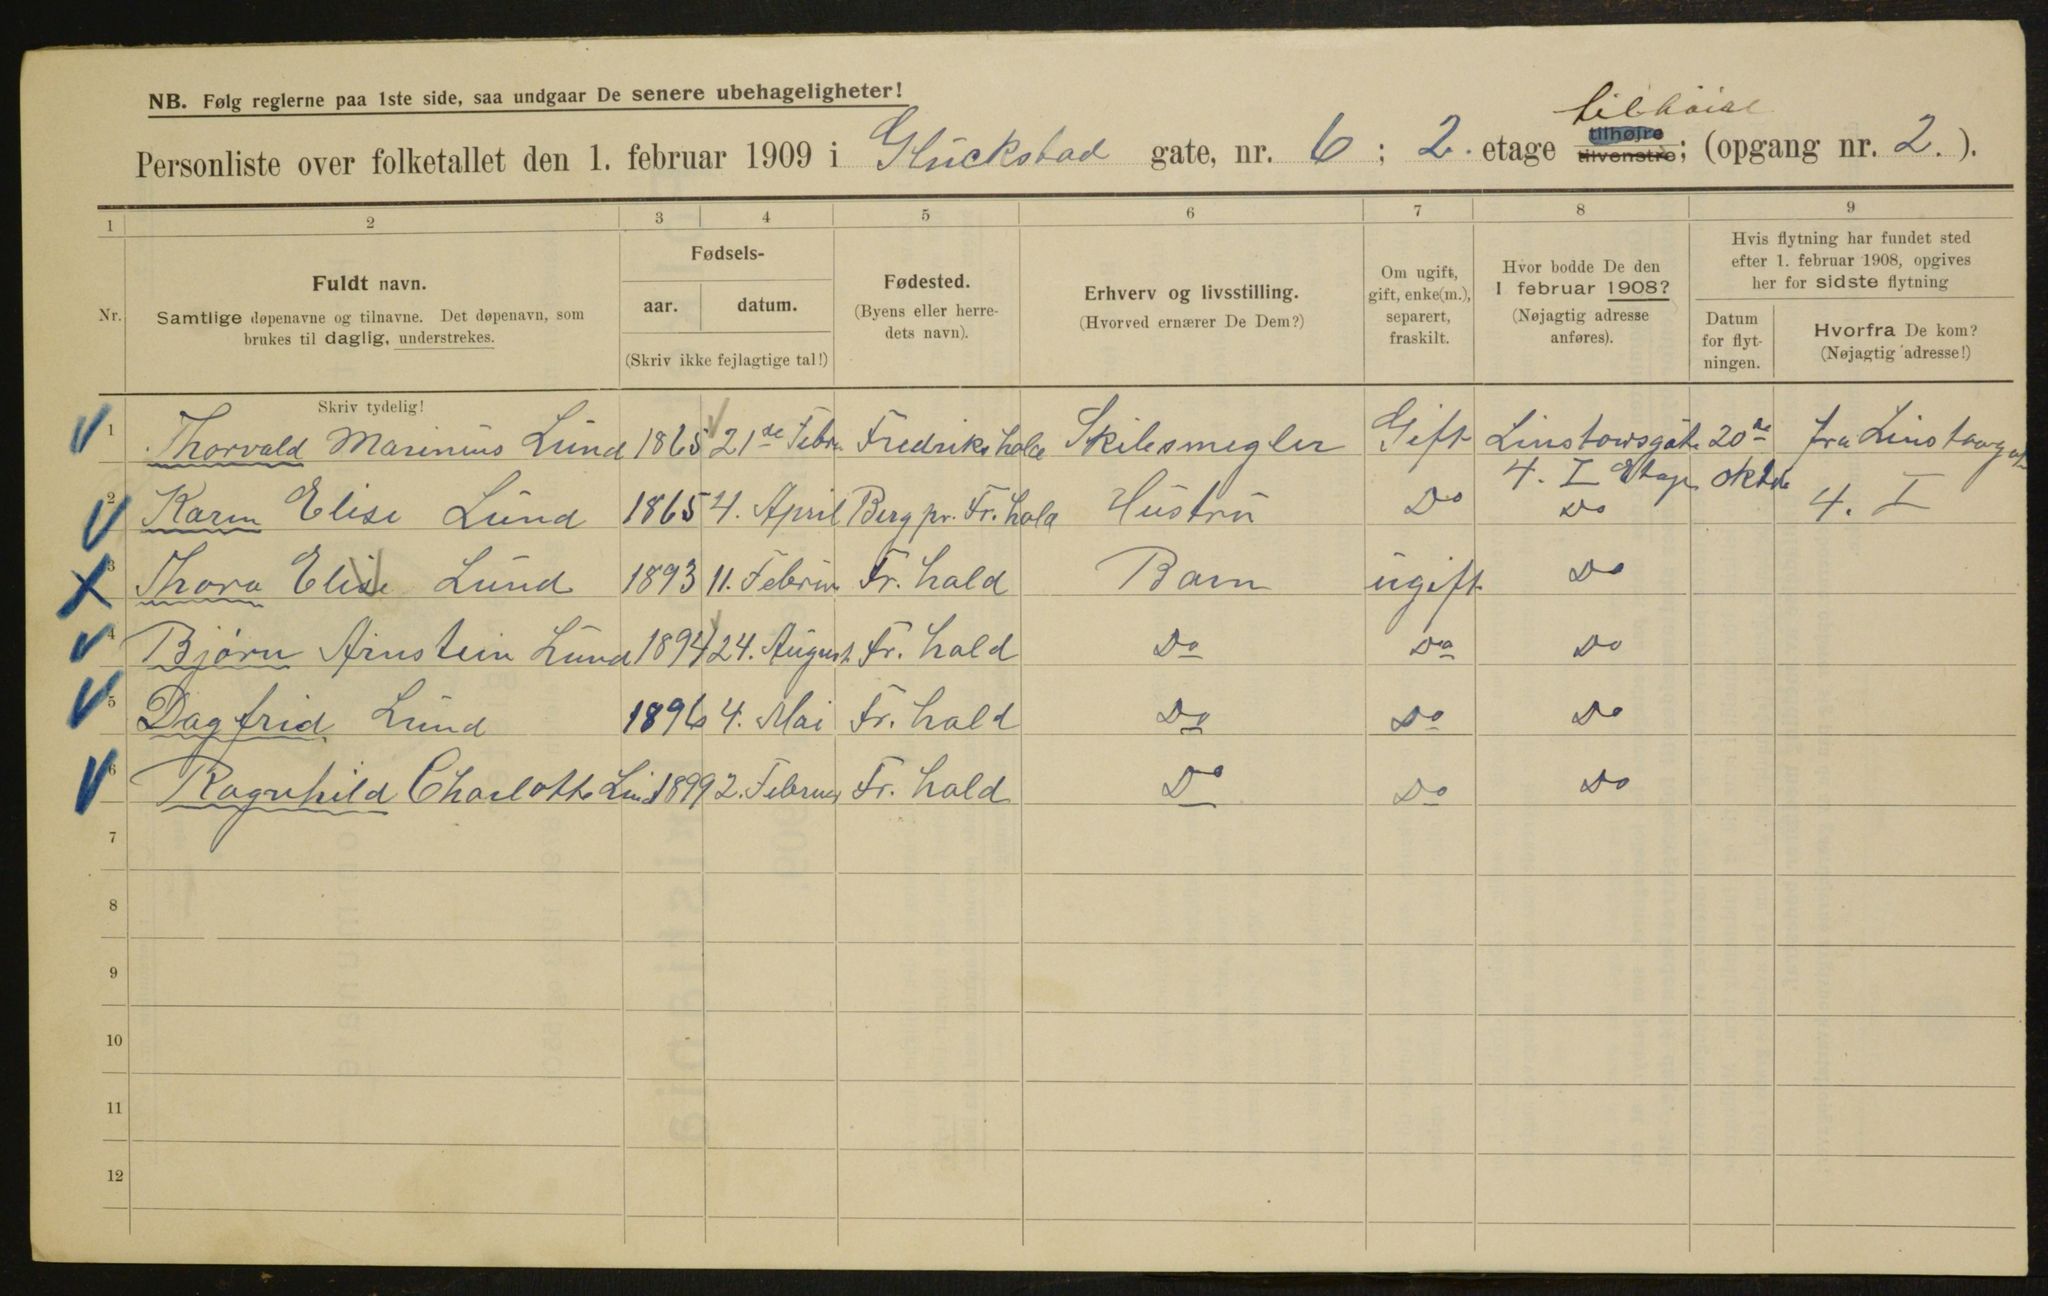 NB. Følg reglerne paa 1ste side, saa undgaar De senere ubehageligheter!
tilhøire
Personliste over folketallet den 1. februar 1909 i Glückstad gate, nr. 6 ; 2. etage tilhøjre tilvenstre; (opgang nr. 2. ).
1 2 3 4 5 6 7 8 9
Nr.
Fuldt navn.
Samtlige døpenavne og tilnavne. Det døpenavn, som
brukes til daglig, understrekes.
Skriv tydelig!
Fødsels-
aar. datum.
(Skriv ikke fejlagtige tal!)
Fødested.
(Byens eller herre-
dets navn).
Erhverv og livsstilling.
(Hvorved ernærer De Dem?)
Om ugift,
gift, enke(m.),
separert,
fraskilt.
Hvor bodde De den
1 februar 1908?
(Nøjagtig adresse
anføres).
Hvis flytning har fundet sted
efter 1. februar 1908, opgives
her for sidste flytning
Datum
for flyt-
ningen.
Hvorfra De kom?
(Nøjagtig adresse!)
1 Thorvald Marinius Lund 1865 21de Febru Fredrikshald Skibsmegler Gift Linstowsgate 20de fra Linstowgate
4. I Etage oktbr
2 Karen Elise Lund 1865 4. April Berg pr. Fr. hald Hustru Do Do 4. I
3 Thora Elise Lund 1893 11. Februar Fr. hald Barn ugift Do
4 Bjørn Arnstein Lund 1894 24. August Fr. hald Do Do Do
5 Dagfrid Lund 1896 4. Mai Fr. hald Do Do Do
6 Ragnhild Charlotte Lund 1899 2. Februar Fr. hald Do Do Do
7
8
9
10
11
12